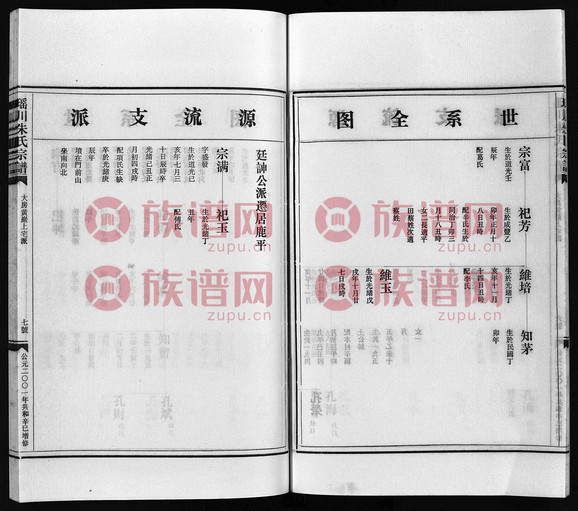 世系全图
宗富
生於道光壬
辰年
配葛氏
祀芳
生於咸豐乙
卯年正月十
八日丑時
配李氏生於
同治丁卯三
月十八丑時
女二長適平
田蔡姓次適
蔡姓
維培
生於光緒丁
亥年十一月
十四日丑時
配李氏
維玉
生於光緒戊
戌年十月廿
七日戌時
知茅
生於民國丁
卯年
源流支派
廷訷公派遷居鹿平
宗满
字盛發
生於道光己
亥年七月三
十日辰時卒
光緒己丑正
月初四戌時
配項氏生缺
卒於光緒庚
辰年
墳在門前山
坐南向北
祀玉
生於光緒丁
丑年
配傅氏
瑶川朱氏宗譜
大房黃巖上宅派
七號
公元二〇〇一年共和辛巳增修
族谱网
zupu.cn
族谱网
zupu.cn
族谱网
zupu.cn
族谱网
zupu.cn